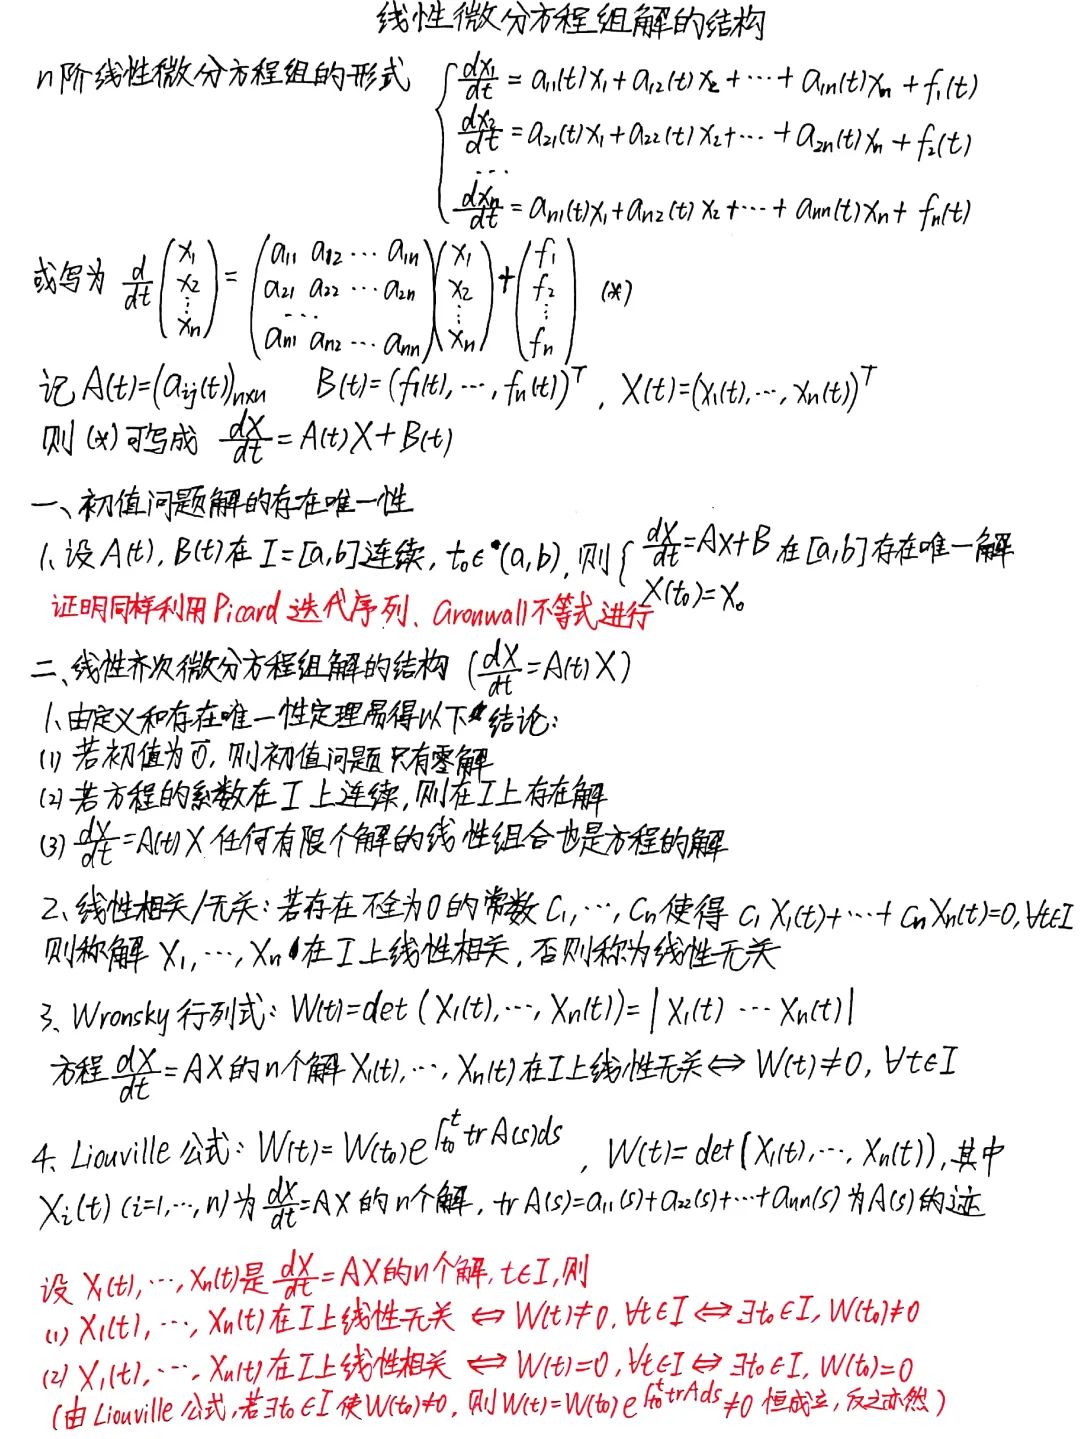 线性微分方程组解的结构
n阶线性微分方程组的形式 { dx₁/dt = a₁₁(t)x₁+a₁₂(t)x₂+⋯+a₁ₙ(t)xₙ+f₁(t)
dx₂/dt = a₂₁(t)x₁+a₂₂(t)x₂+⋯+a₂ₙ(t)xₙ+f₂(t)
⋯
dxₙ/dt = aₙ₁(t)x₁+aₙ₂(t)x₂+⋯+aₙₙ(t)xₙ+fₙ(t)
或写为 d/dt (x₁ x₂ ⋮ xₙ) = (a₁₁ a₁₂ ⋯ a₁ₙ a₂₁ a₂₂ ⋯ a₂ₙ ⋯ aₙ₁ aₙ₂ ⋯ aₙₙ)(x₁ x₂ ⋮ xₙ)+(f₁ f₂ ⋮ fₙ) (*)
记 A(t)=(aᵢⱼ(t))ₙₓₙ B(t)=(f₁(t),⋯,fₙ(t))ᵀ, X(t)=(x₁(t),⋯,xₙ(t))ᵀ
则(*)可写成 dX/dt = A(t)X+B(t)
一、初值问题解的存在唯一性
1、设A(t), B(t)在I=[a,b]连续, t₀∈(a,b), 则 { dX/dt=AX+B X(t₀)=X₀ 在[a,b]存在唯一解
证明同样利用Picard迭代序列、Gronwall不等式进行
二、线性齐次微分方程组解的结构 (dX/dt=A(t)X)
1、由定义和存在唯一性定理易得以下结论:
(1) 若初值为0, 则初值问题只有零解
(2) 若方程的系数在I上连续, 则在I上存在解
(3) dX/dt=A(t)X 任何有限个解的线性组合也是方程的解
2、线性相关/无关: 若存在不全为0的常数C₁,⋯,Cₙ使得 C₁X₁(t)+⋯+CₙXₙ(t)=0,∀t∈I
则称解 X₁,⋯,Xₙ在I上线性相关, 否则称为线性无关
3、Wronsky行列式: W(t)=det(X₁(t),⋯,Xₙ(t))=|X₁(t) ⋯ Xₙ(t)|
方程 dX/dt=AX的n个解X₁(t),⋯,Xₙ(t)在I上线性无关⇔W(t)≠0, ∀t∈I
4、Liouville公式: W(t)=W(t₀)e^∫ₜ₀ᵗ trA(s)ds, W(t)=det(X₁(t),⋯,Xₙ(t)),其中
Xᵢ(t) (i=1,⋯,n)为 dX/dt=AX的n个解, trA(s)=a₁₁(s)+a₂₂(s)+⋯+aₙₙ(s)为A(s)的迹
设X₁(t),⋯,Xₙ(t)是 dX/dt=AX的n个解, t∈I,则
(1) X₁(t),⋯,Xₙ(t)在I上线性无关 ⇔ W(t)≠0,∀t∈I⇔∃t₀∈I,W(t₀)≠0
(2) X₁(t),⋯,Xₙ(t)在I上线性相关 ⇔ W(t)=0,∀t∈I⇔∃t₀∈I, W(t₀)=0
(由Liouville公式,若∃t₀∈I使W(t₀)≠0, 则W(t)=W(t₀)e^∫ₜ₀ᵗ trAds≠0 恒成立,反之亦然)